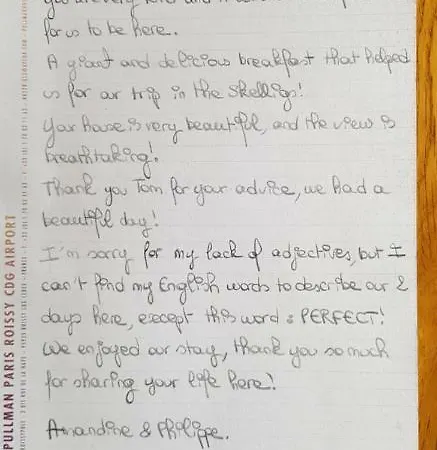 for us to be here..
A giant and delicious breakfast that helped
us for our trip in the Skelligs!
Your house is very beautiful, and the view is
breathtaking!
Thank you Tom for your advice, we had a
beautiful day!
I'm sorry for my lack of adjectives, but I
can't find my English words to describe our 2
days here, except this word : PERFECT!
We enjoyed our stay, thank you so much
for sharing your life here!
Amandine & Philippe.
PULLMAN PARIS ROISSY CDG AIRPORT